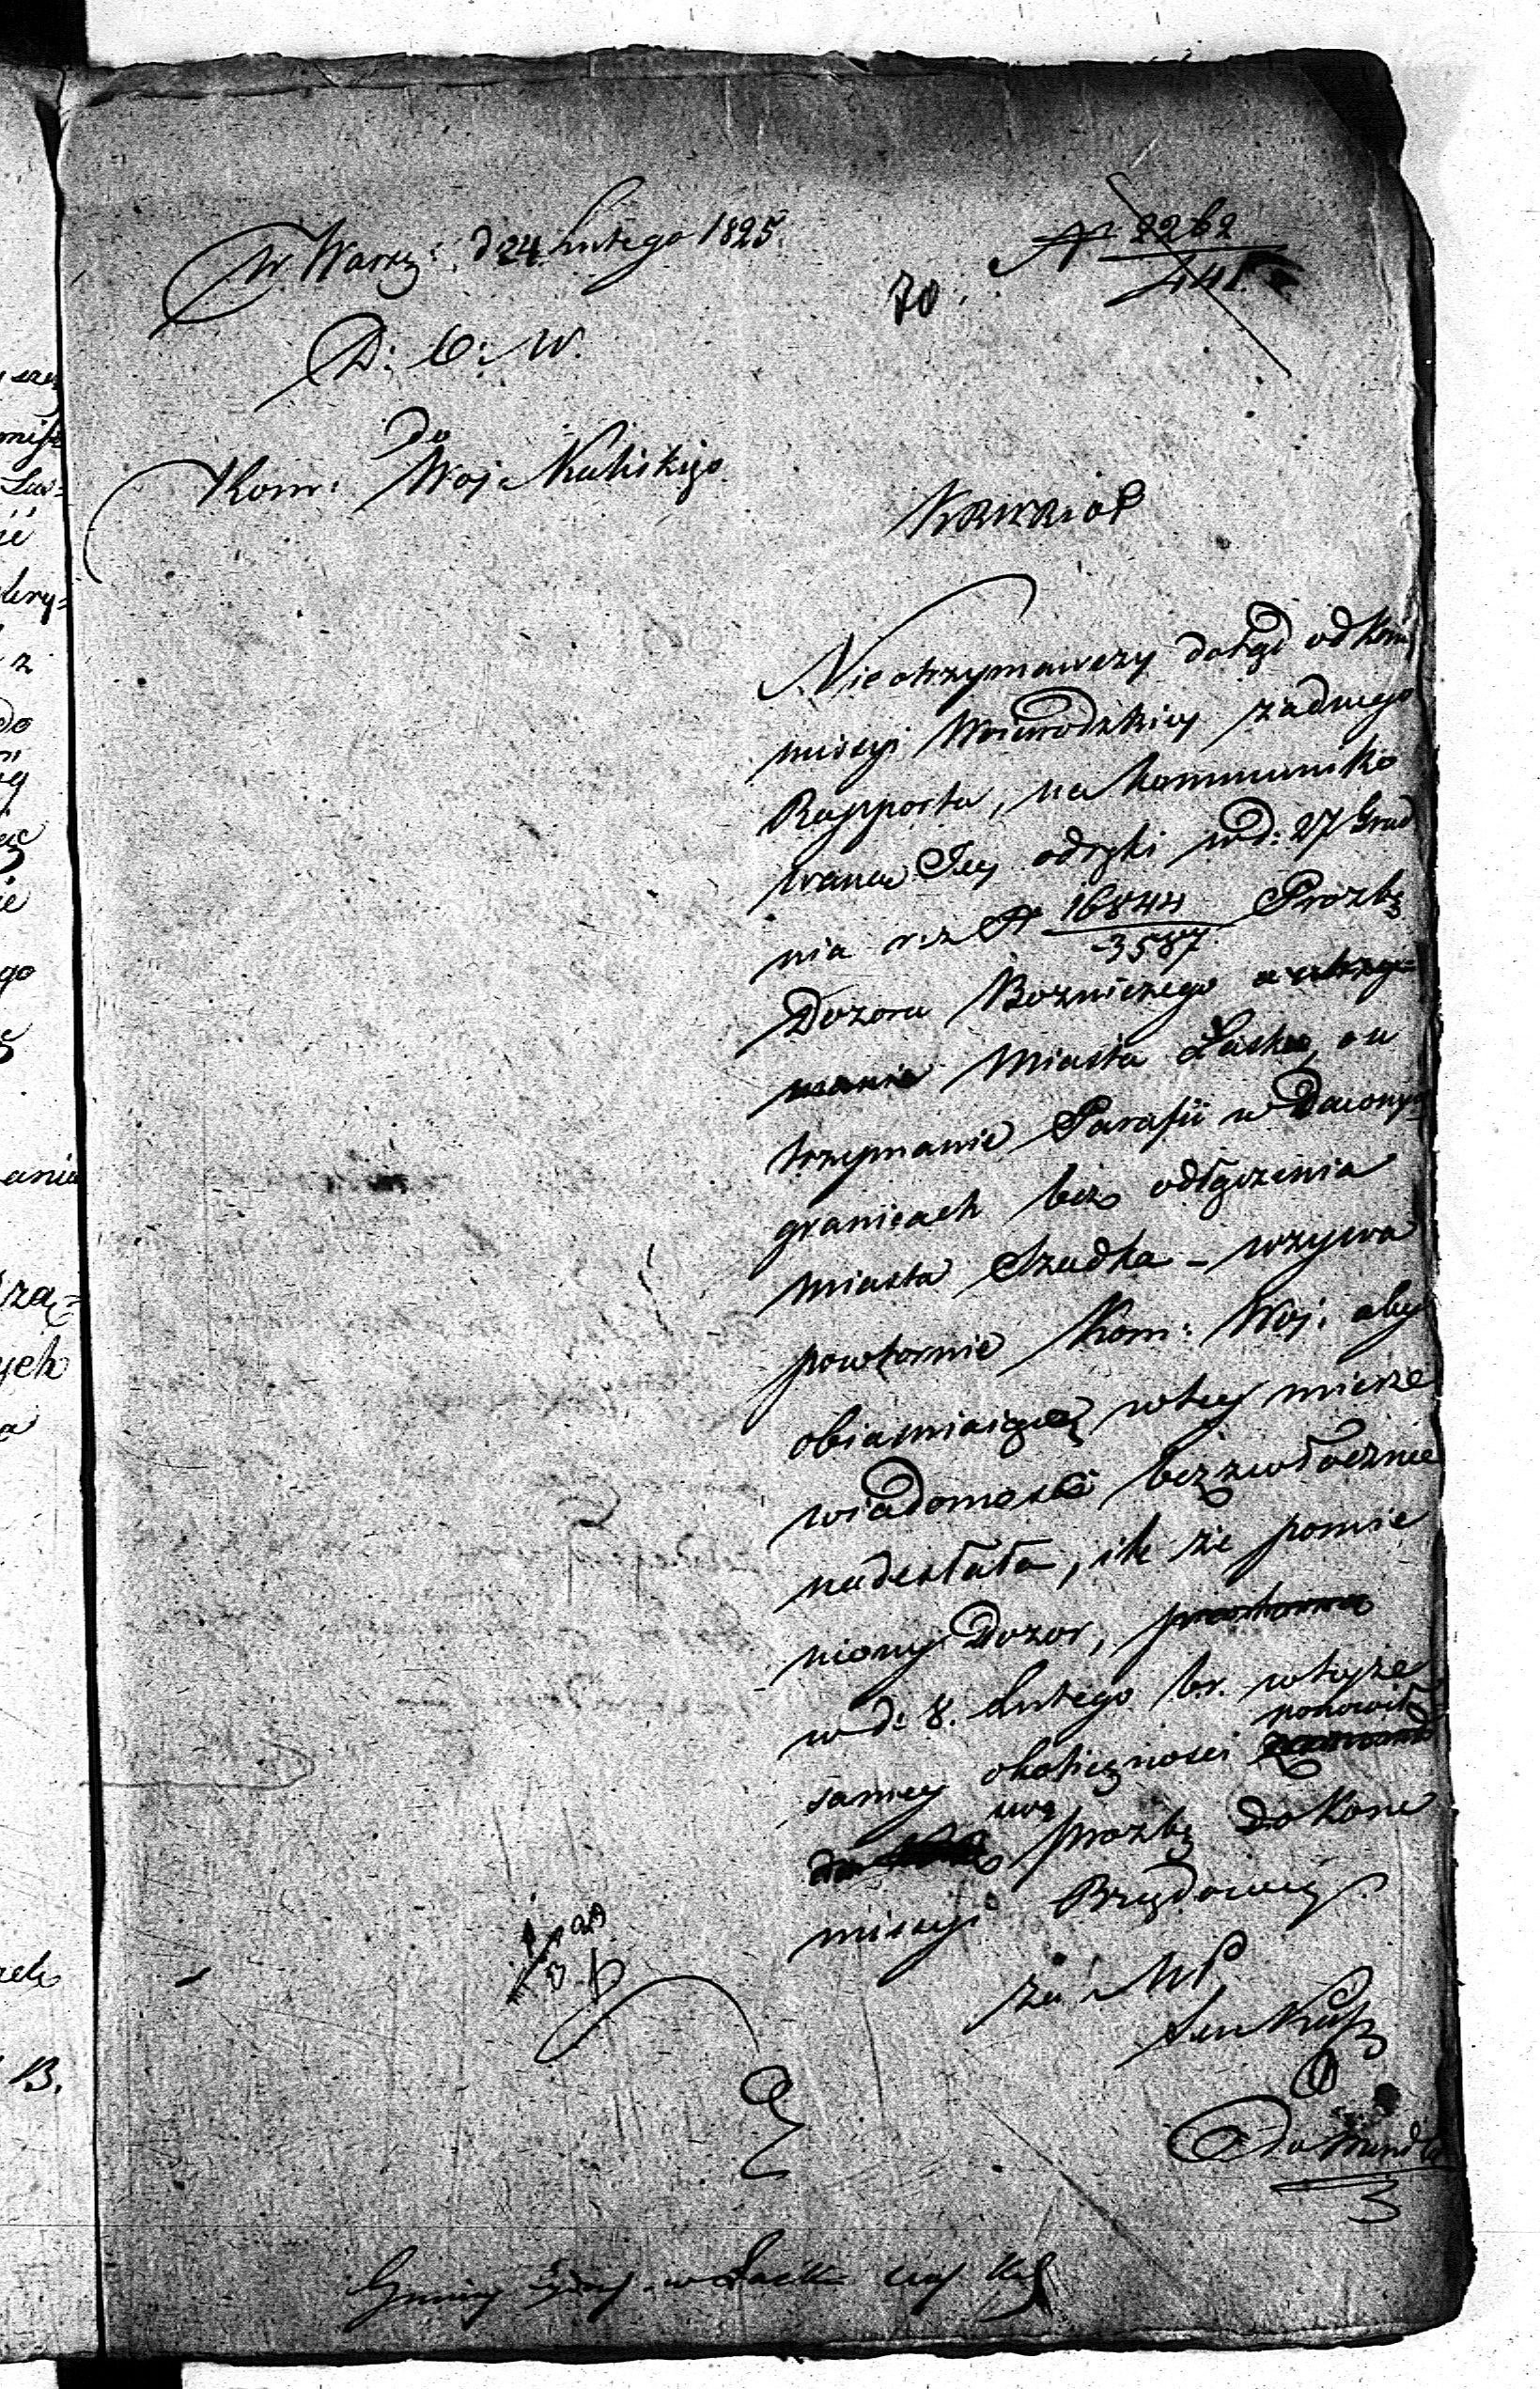 W Warsz: d 24 Lutego 1825.
N 2262
441
70.
D: O: W.
do
Kom: Woj Kaliskiego
Nieotrzymawszy dotąd od Kom
missyi Woiewodzkiey żadnego
Rapportu, na kommuniko
waną Jey odezki w d: 27 Grud
nia r: z N 16844 Prozbę
3587
Dozoru Bozniczego
Miasta Łasku, o u
trzymanie Parafii w Dawnych
granicach bez odłączenia
miasta Szadka – wzywa
powtornie Kom: Woj: aby
obiasniaiącą w tey mierze
wiadomość bezzwłocznie
nadesłała, ile że pomie
niony Dozor,
w d: 8. Lutego b.r. w teyże
ponowił
samey okoliczności
swą
prozbę do Kom
missyi Rządowey
za MP.
Do Mund
Gminy Żydow. w Łasku